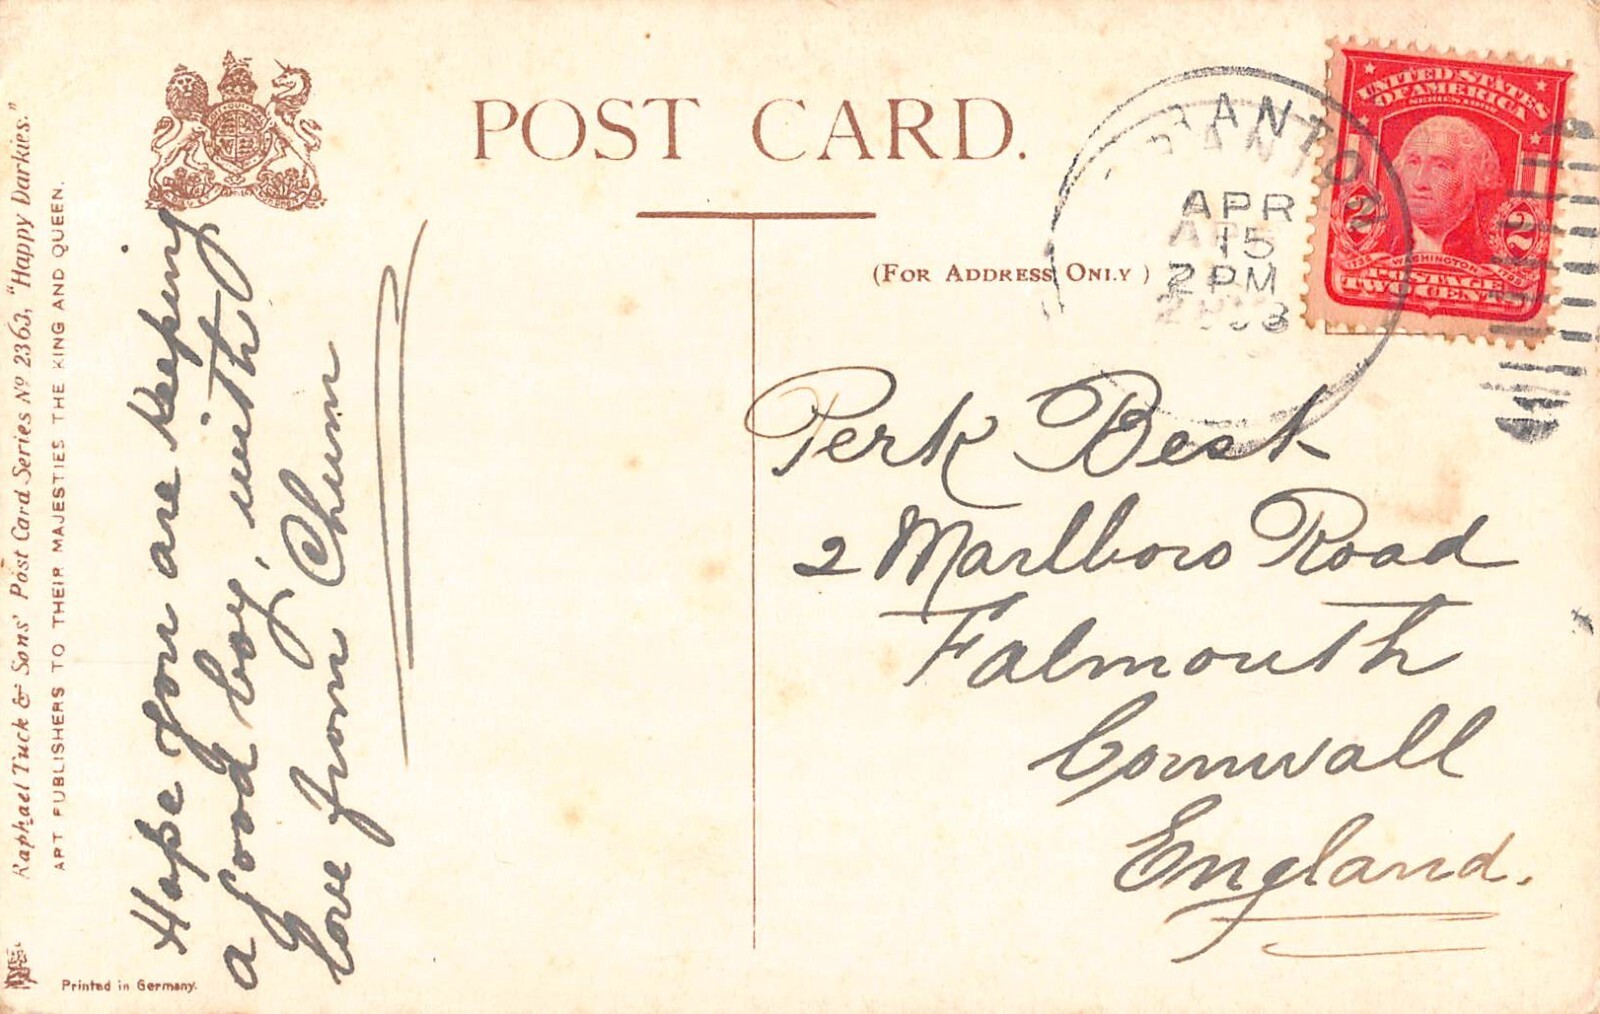 Raphael Tuck & Sons' Post Card Series Nº 2363, "Happy Darkies."
ART PUBLISHERS TO THEIR MAJESTIES THE KING AND QUEEN.
POST CARD.
(FOR ADDRESS ONLY)
UNITED STATES
OF AMERICA
SERIES 1902
2 2
1732 WASHINGTON 1799
POSTAGE
TWO CENTS
RANTON
APR
15
2 PM
Hope you are keeping
a good boy, with
love from Chum
Perk Best
2 Marlboro Road
Falmouth
Cornwall
England.
Printed in Germany.